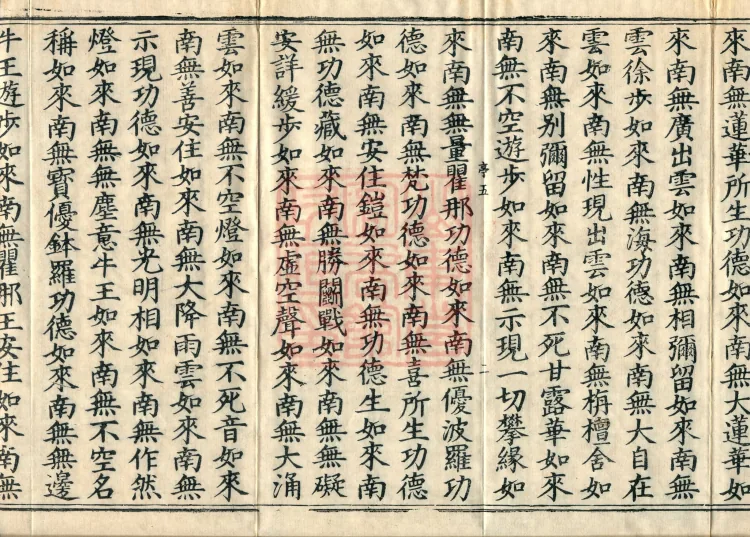 來南無蓮華所生功德如來南無大蓮華如
來南無廣出雲如來南無相彌留如來南無
雲徐步如來南無海功德如來南無大自在
雲如來南無性現出雲如來南無栴檀舍如
來南無別彌留如來南無不死甘露華如來
南無不空遊步如來南無示現一切攀緣如
亭五 二
來南無無量瞿那功德如來南無優波羅功
德如來南無梵功德如來南無喜所生功德
如來南無安住鎧如來南無功德生如來南
無功德藏如來南無勝鬪戰如來南無無礙
安詳緩步如來南無虛空聲如來南無大涌
雲如來南無不空燈如來南無不死音如來
南無善安住如來南無大降雨雲如來南無
示現功德如來南無光明相如來南無作然
燈如來南無無塵意牛王如來南無不空名
稱如來南無寶優鉢羅功德如來南無無邊
牛王遊步如來南無瞿那王安住如來南無